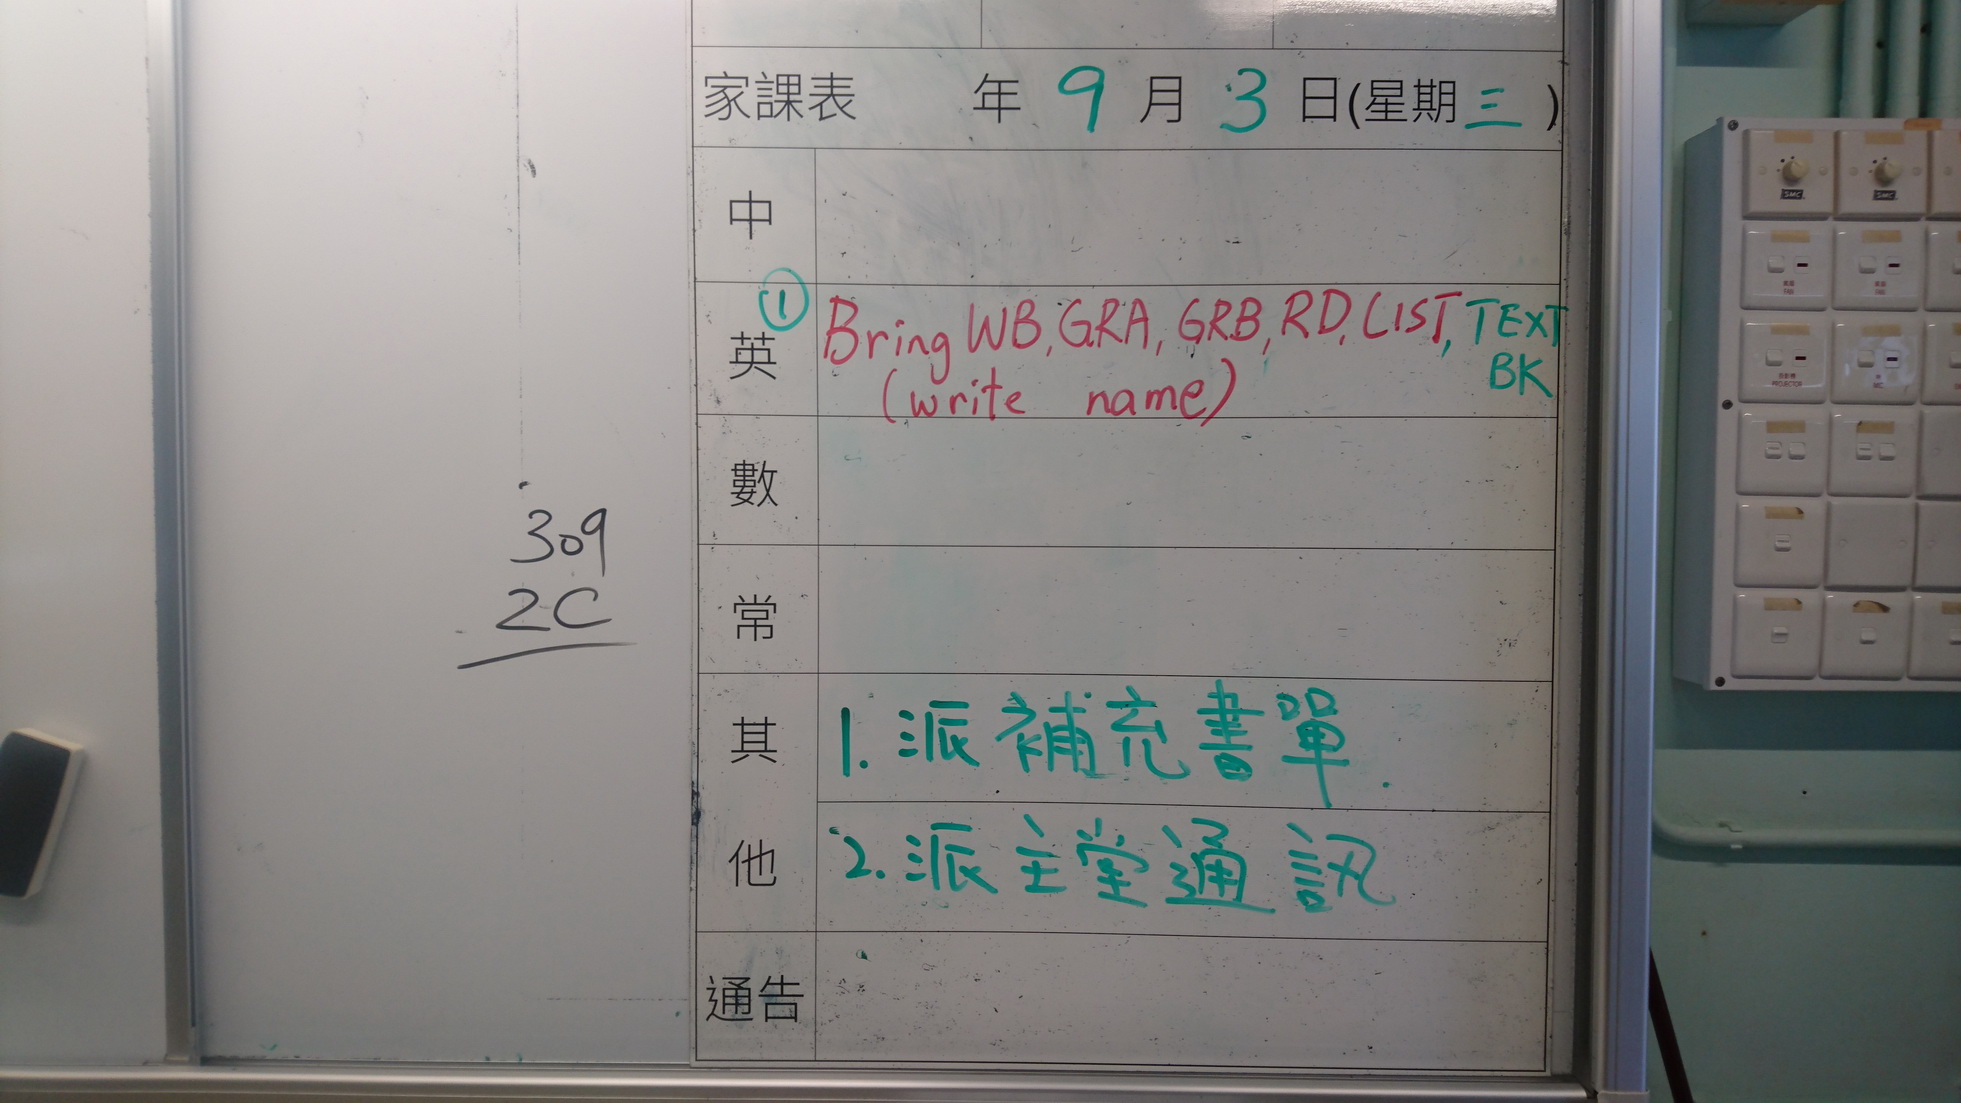 家課表 年 9 月 3 日(星期三)
中
英 ① Bring WB, GRA, GRB, RD, LIST, TEXT
BK
(write name)
數
常
309
2C
其他
1. 派補充書單.
2. 派主堂通訊
通告
SMC
SMC
PROJECTOR